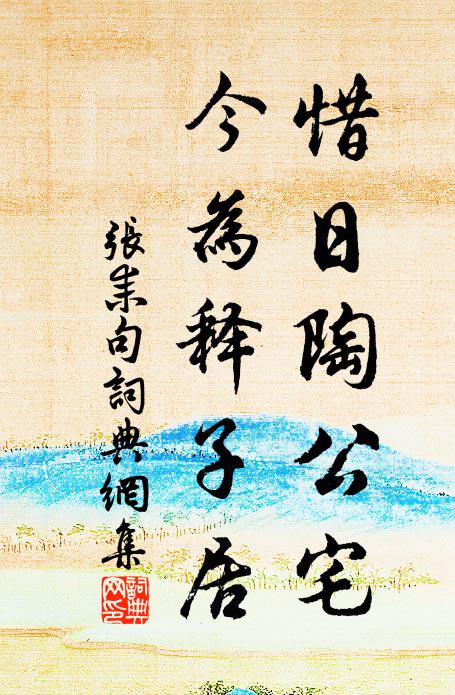 惜日陶公宅
今為释子居
張耒句詞典網集
詞典
网印